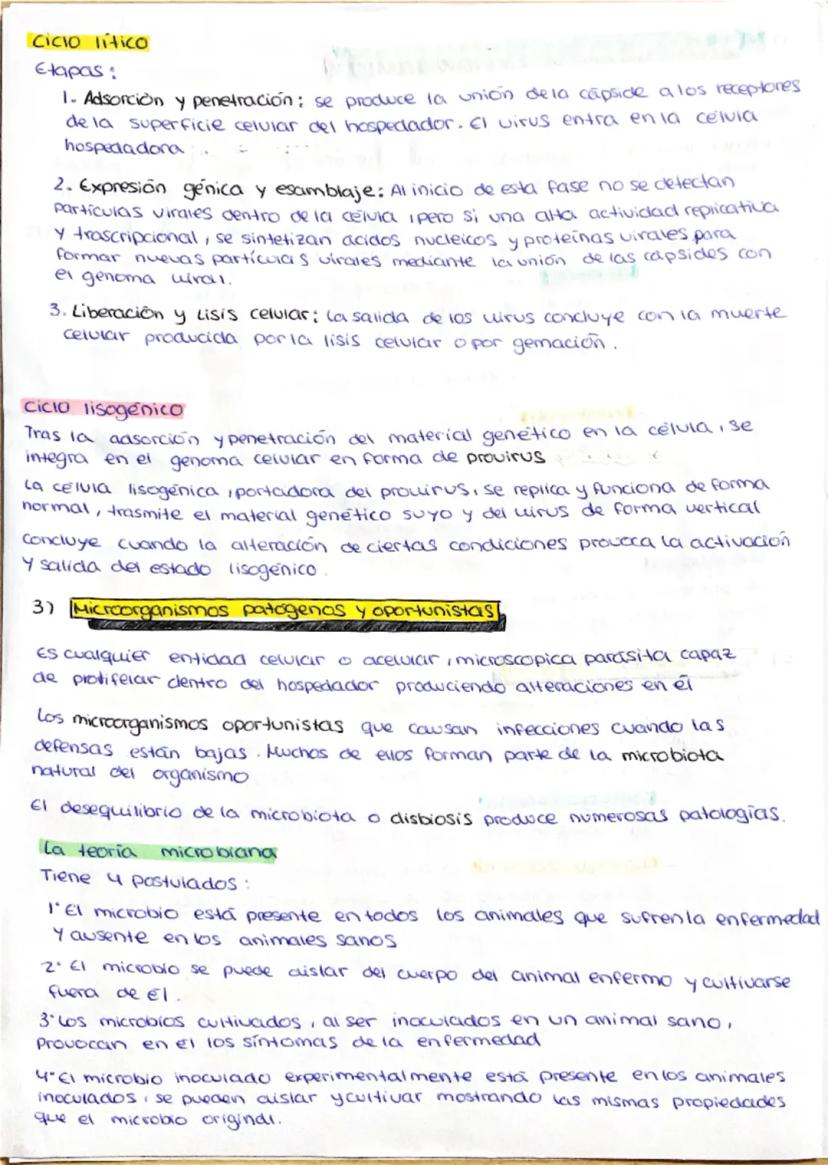 Ciclo lítico
Etapas:
1. Adsorción y penetración: se produce la unión de la cápside a los receptores
de la superficie celular del hospedador. El virus entra en la célula
hospedadora
2. Expresión génica y esamblaje: Al inicio de esta fase no se detectan
partículas virales dentro de la célula, pero si una alta actividad replicativa
y trascripcional, se sintetizan ácidos nucleicos y proteínas virales para
formar nuevas partículas virales mediante la unión de las cápsides con
el genoma viral.
3. Liberación y lisis celular: La salida de los virus concluye con la muerte
celular producida por la lisis celular o por gemación.
Ciclo lisogénico
Tras la adsorción y penetración del material genético en la célula, se
integra en el genoma celular en forma de provirus
La célula lisogénica, portadora del provirus, se replica y funciona de forma
normal, trasmite el material genético suyo y del virus de forma vertical
Concluye cuando la alteración de ciertas condiciones provoca la activación
y salida del estado lisogénico.
3) Microorganismos patógenos y oportunistas
Es cualquier entidad celular o acelular, microscopica parásita capaz
de proliferar dentro del hospedador produciendo alteraciones en él
Los microorganismos oportunistas que causan infecciones cuando las
defensas están bajas. Muchos de ellos forman parte de la microbiota
natural del organismo
El desequilibrio de la microbiota o disbiosis produce numerosas patologías.
La teoría microbiana
Tiene 4 postulados:
1° El microbio está presente en todos los animales que sufren la enfermedad
y ausente en los animales sanos
2° El microbio se puede aislar del cuerpo del animal enfermo y cultivarse
fuera de él.
3° Los microbios cultivados, al ser inoculados en un animal sano,
provocan en el los síntomas de la enfermedad
4° El microbio inoculado experimentalmente está presente en los animales
inoculados, se pueden aislar y cultivar mostrando las mismas propiedades
que el microbio original.